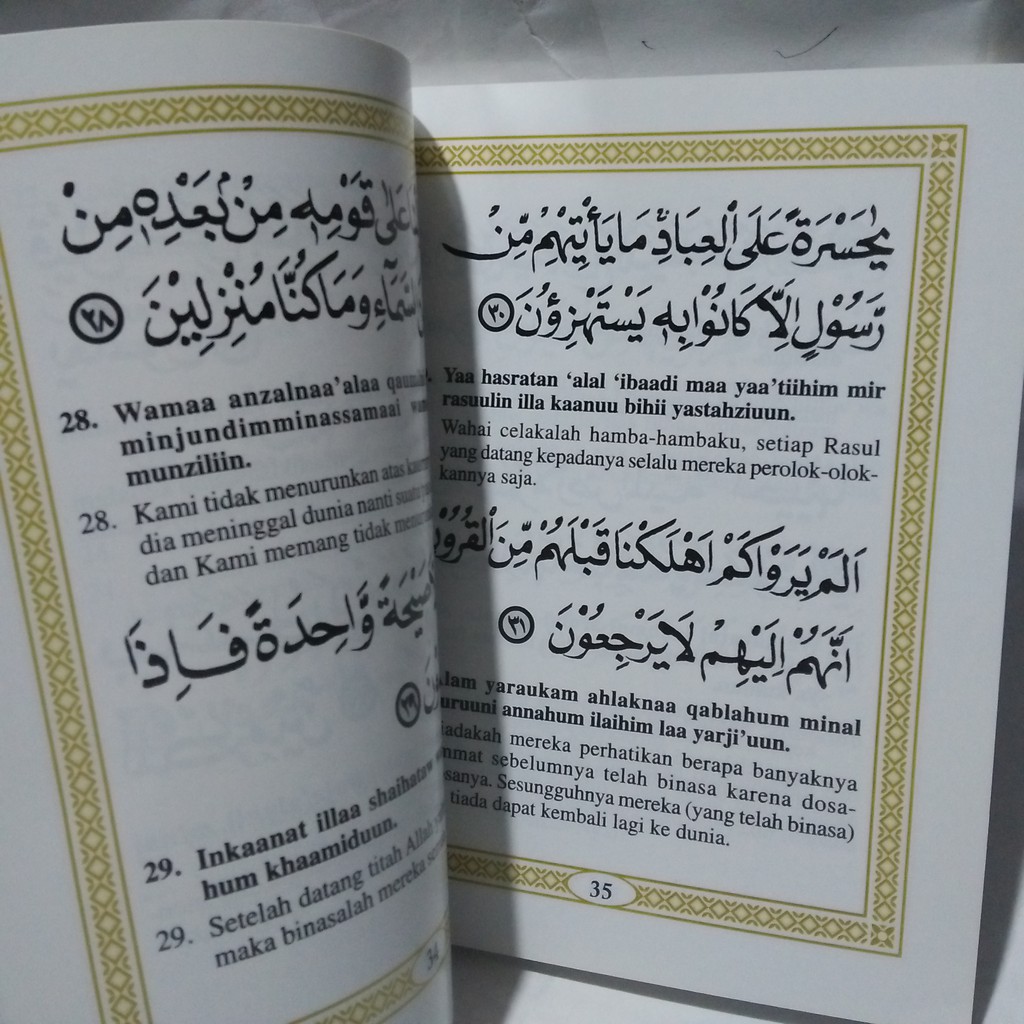 عَلٰى قَوْمِهٖ مِنْۢ بَعْدِهٖ مِنْ
وَمَا كُنَّا مُنْزِلِيْنَ ٢٨
28. Wamaa anzalnaa'alaa
minjundimminassamaai
munziliin.
28. Kami tidak menurunkan atas
dia meninggal dunia nanti
dan Kami memang tidak
صَيْحَةً وَّاحِدَةً فَاِذَا
٢٩
29. Inkaanat illaa
hum khaamiduun.
29. Setelah datang titah Allah
maka binasalah mereka
34
يٰحَسْرَةً عَلَى الْعِبَادِۚ مَا يَأْتِيْهِمْ مِّنْ
رَّسُوْلٍ اِلَّا كَانُوْا بِهٖ يَسْتَهْزِؤُنَ ٣٠
Yaa hasratan 'alal 'ibaadi maa yaa'tiihim mir
rasuulin illa kaanuu bihii yastahziuun.
Wahai celakalah hamba-hambaku, setiap Rasul
yang datang kepadanya selalu mereka perolok-olok-
kannya saja.
اَلَمْ يَرَوْا كَمْ اَهْلَكْنَا قَبْلَهُمْ مِّنَ الْقُرُوْنِ
اَنَّهُمْ اِلَيْهِمْ لَا يَرْجِعُوْنَ ٣١
yaraukam ahlaknaa qablahum minal
annahum ilaihim laa yarji'uun.
mereka perhatikan berapa banyaknya
sebelumnya telah binasa karena dosa-
Sesungguhnya mereka (yang telah binasa)
tiada dapat kembali lagi ke dunia.
35